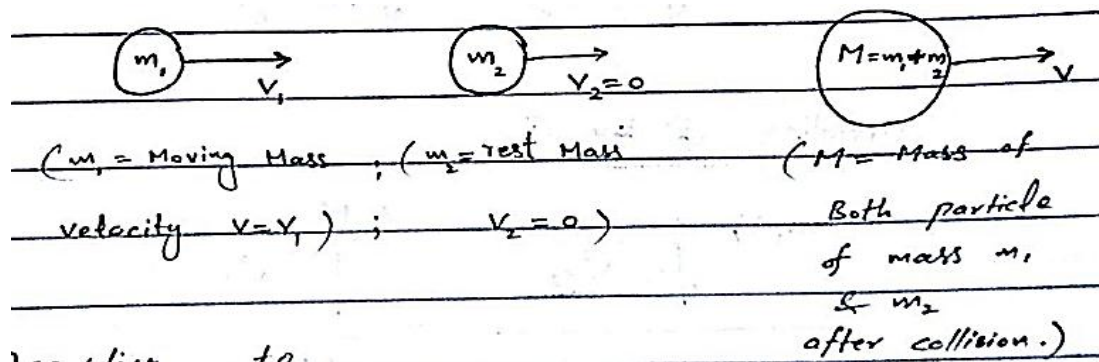 m₁ V₁ m₂ V₂=0 M=m₁+m₂ V
(m₁ = Moving Mass ; (m₂=rest Mass (M= Mass of
velocity V=V₁) ; V₂ = 0) Both particle
of mass m₁
& m₂
after collision.)
to